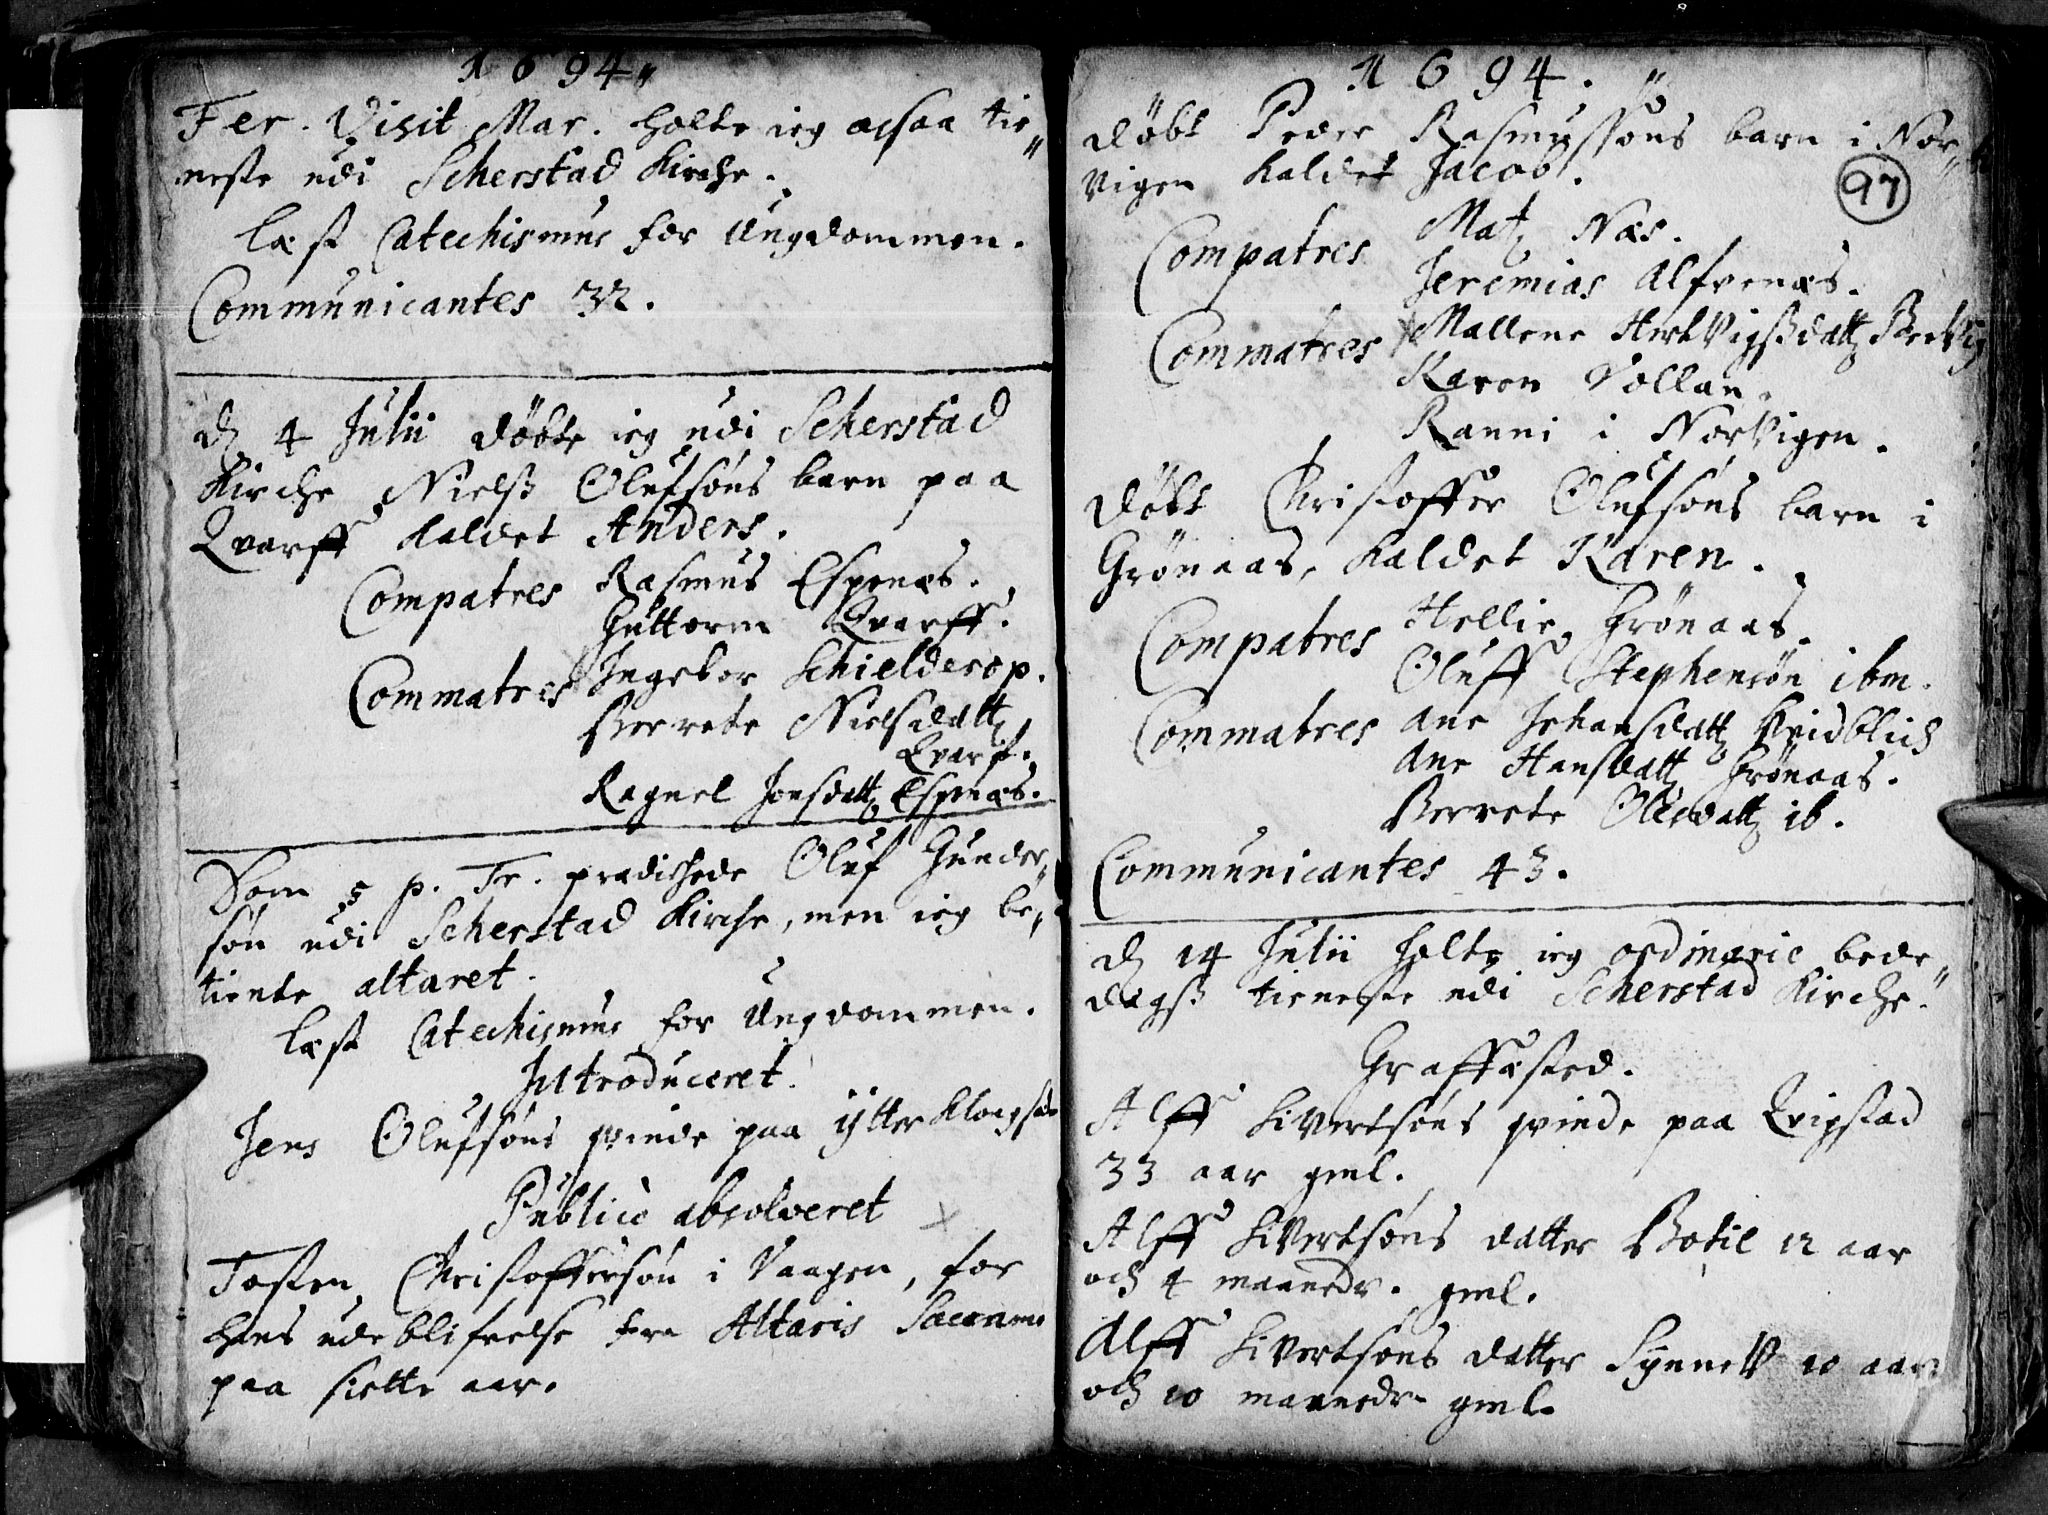 1694
Fer. Visit. Mar. holte ieg ocsaa tie„
neste udi Scherstad Kirche.
Læst Catechismus for Ungdommen.
Communicantes 32.
d. 4 Julii döbte ieg udi Scherstad
Kirche Nielß Olufsöns barn paa
Qvarff kaldet Anders.
Compatres Rasmus Espenæs.
Guttorm Qvarff.
Commatres Ingebor Schielderop.
Berrete Nielsdatt
Qvarf.
Ragnel Jonsdatt Espenæs.
Dom 5 p. Tr. prædichede Oluf Gunder„
sön udi Scherstad Kirche, men ieg be„
tiente altaret.
Læst Catechismus for Ungdommen.
Introduceret.
Jens Olufsöns qvinde paa ytter
Publicè absolveret
Tosten Christoffersön i Vaagen, for
hans udeblifvelse fra Altaris Sacram
paa siette aar.
1694.
97
döbt Peder Rasmussöns barn i Nor„
vigen kaldet Jacob.
Compatres Mat Næs.
Jeremias Alfvenæs.
Commatres Mallene HertVigßdatt
Karen Vollan.
Ranni i NorVigen.
döbt Christoffer Olufsöns barn i
Grönaas, kaldet Karen.
Compatres Hellie Grönaas.
Oluff Stephensön ibm.
Commatres Ane Johansdatt Hvidblich
Ane Hansdatt Grönaas.
Berrete Olesdatt ib.
Communicantes 43.
d. 14 Julii holte ieg ordinarie bede„
dagß tieneste udi Scherstad Kirche.
Graffæsted.
Alff Sivertsöns qvinde paa Qvigstad
33 aar gml.
Alff Sivertsöns datter Botil 12 aar
och 4 maaneder. gml.
Alff Sivertsöns datter SynneV 10 aar
och 10 maaneder gml.